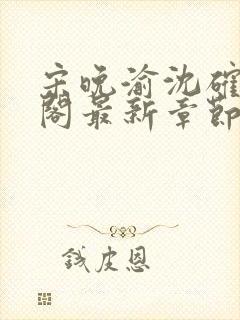 宋晚渝沈確
閣最新章節
錢皮恩